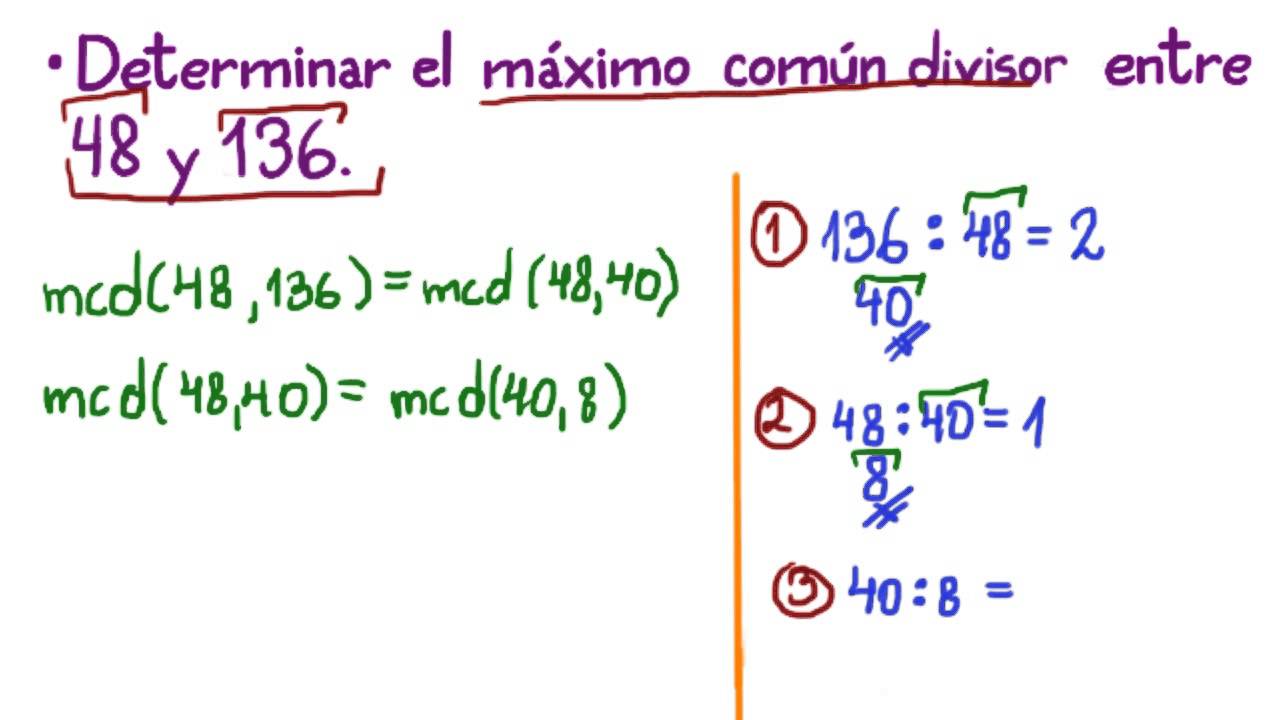 • Determinar el máximo común divisor entre
48 y 136.
mcd(48,136) = mcd(48,40)
mcd(48,40) = mcd(40,8)
① 136 : 48 = 2
40
② 48 : 40 = 1
8
③ 40 : 8 =